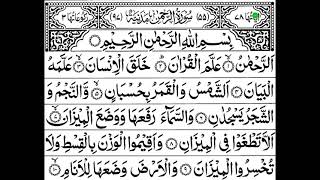 اٰیاتها ۷۸ (۵۵) سُوْرَةُ الرَّحْمٰنِ مَدَنِيَّةٌ (۹۷) رکوعاتها ۳
بِسْمِ اللّٰهِ الرَّحْمٰنِ الرَّحِيْمِ
اَلرَّحْمٰنُ ۙ۱ عَلَّمَ الْقُرْاٰنَ ؕ۲ خَلَقَ الْاِنْسَانَ ۙ۳ عَلَّمَهُ
الْبَيَانَ ۴ اَلشَّمْسُ وَالْقَمَرُ بِحُسْبَانٍ ۪۵ وَّالنَّجْمُ وَ
الشَّجَرُ يَسْجُدٰنِ ۶ وَالسَّمَآءَ رَفَعَهَا وَوَضَعَ الْمِيْزَانَ ۙ۷
اَلَّا تَطْغَوْا فِى الْمِيْزَانِ ۸ وَاَقِيْمُوا الْوَزْنَ بِالْقِسْطِ وَلَا
تُخْسِرُوا الْمِيْزَانَ ۹ وَالْاَرْضَ وَضَعَهَا لِلْاَنَامِ ۙ۱۰